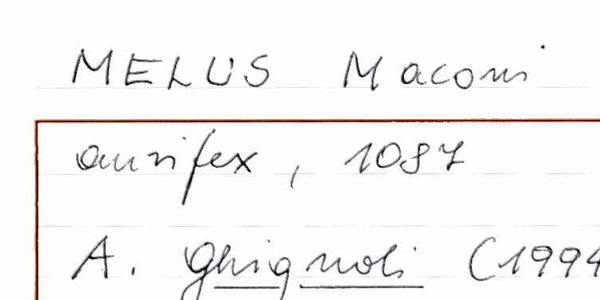 MELUS Maconi
aurifex, 1087
A. Ghignoli (1994